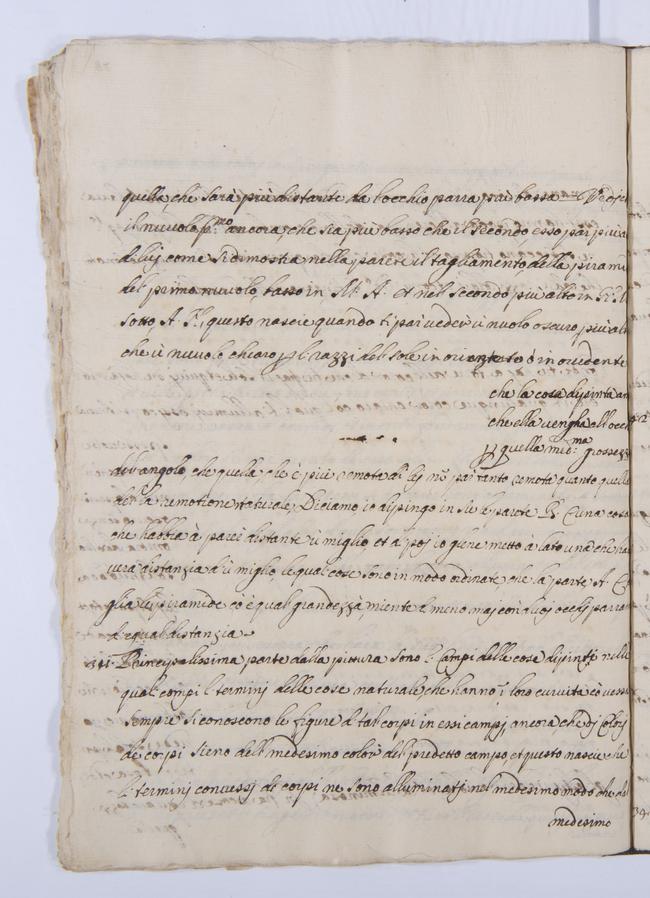 quella, che sarà più distante da l'occhio parra più bassa Vedi
il nuvolo p.mo ancora, che sia più basso che il secondo, esso par più
di lui come si dimostra nella parete il tagliamento della pirami
del primo nuvolo, basso in M. A. et nel secondo più alto in
sotto A. questo nascie quando ti par veder ù nuolo oscuro più al
che ù nuvolo chiaro p l. razzi del sole in oriente o in ovidente
che la cosa dipinta an
che ella vengha all'occh
p quella med.ma grossezz
di l'angolo, che quella che è più remota di lej nō par tanto remota quanto quella
della remotione naturale, Diciamo io dipingo in su la parete B. C. una cosa
che habbia à parer distante ù miglio, et di poj io gliene metto à lato una che ha
vera distanzia d'ù miglio, le qual cose sono in modo ordinate che la parte A. C.
glia le piramide cō equal grandezzà, niente di meno maj con dioj occhj parran
d'equal distanzia
341. Principalissima parte dalla pittura sono l. Campi delle cose dipintj nelle
qual. campi l. terminj delle cose naturale, che hanno ī loro curvità cōvessa
sempre si conoscono le figure di tal. corpi in essi campj, ancora, che dj Colorj
de corpi sieno del medesimo color del predetto campo, et questo nascie che
l. terminj convessj de corpi ne sono alluminatj nel medesimo modo che del
medesimo